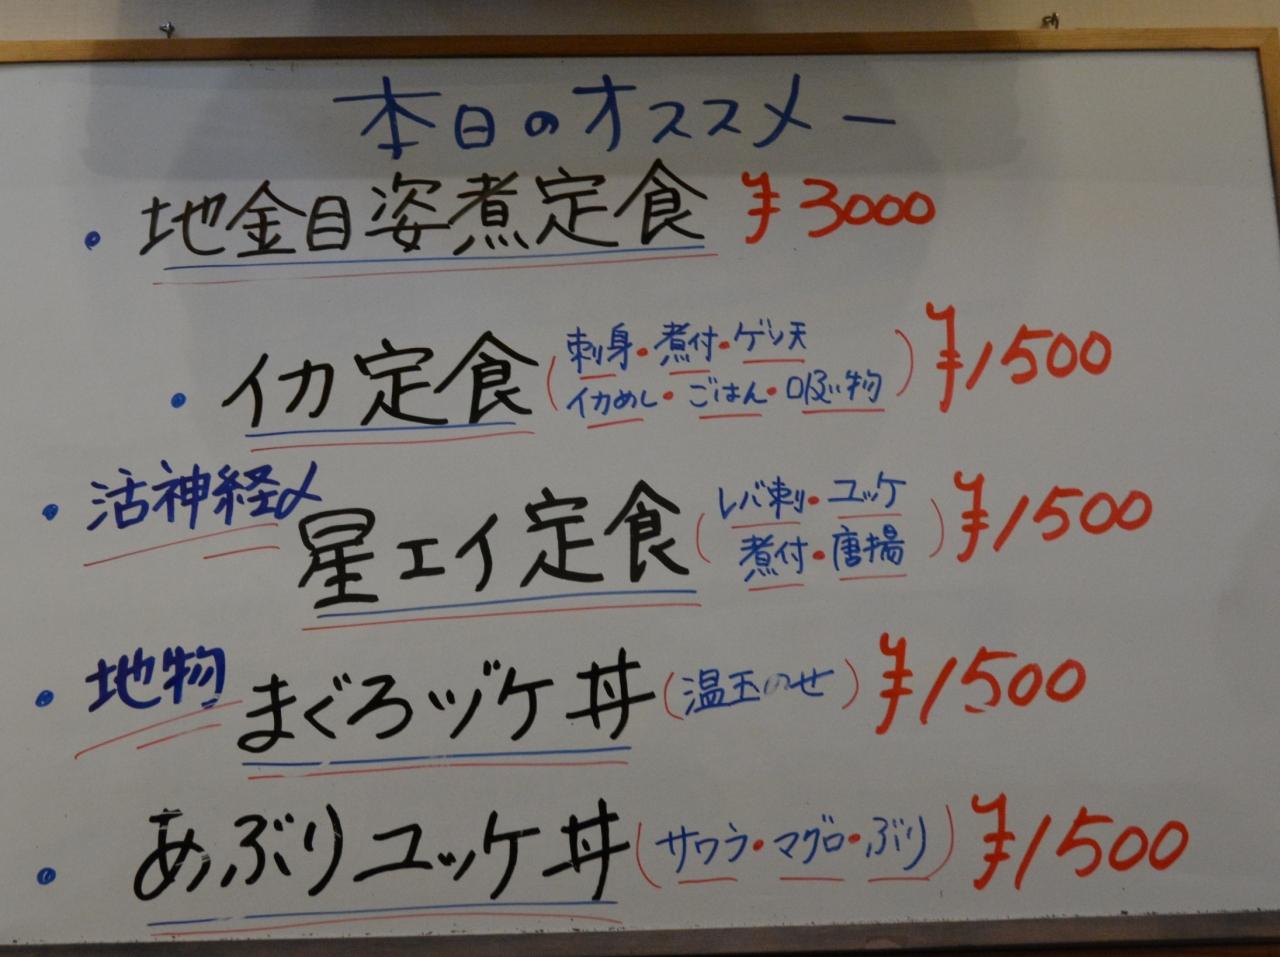 本日のオススメー
・地金目姿煮定食 ¥3000
・イカ定食(刺身・煮付・ゲソ天 イカめし・ごはん・吸い物) ¥1500
・活神経〆 星エイ定食(レバ刺・ユッケ 煮付・唐揚) ¥1500
・地物 まぐろヅケ丼(温玉のせ) ¥1500
・あぶりユッケ丼(サワラ・マグロ・ぶり) ¥1500